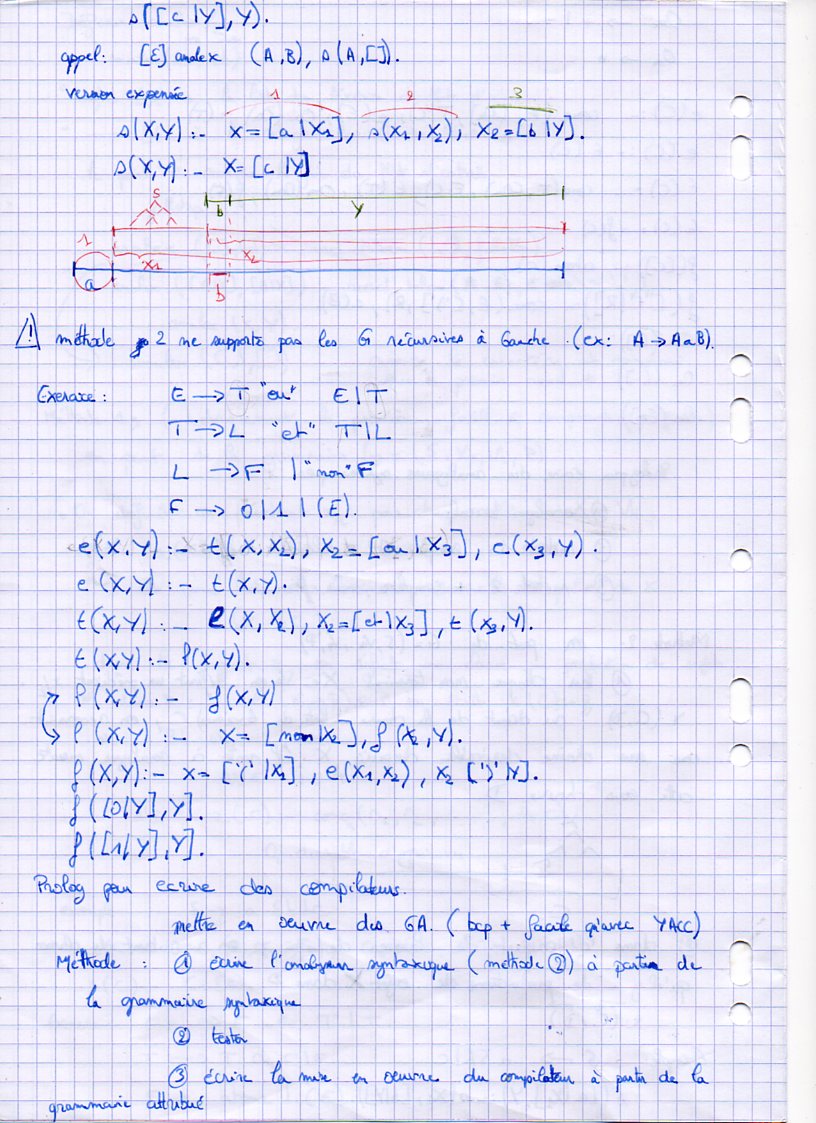 s([c|Y],Y).
appel: [E] analex (A,B), s(A,[]).
version expensée
1 2 3
s(X,Y) :- X=[a|X1], s(X1,X2), X2=[b|Y].
s(X,Y) :- X=[c|Y]
S
b Y
1
X1 X2
a
b
! méthode 2 ne supporte pas les G récursives à Gauche. (ex: A → AaB).
Exercice : E → T "ou" E | T
T → L "et" T | L
L → F | "non" F
F → 0 | 1 | (E).
e(X,Y) :- t(X,X2), X2=[ou|X3], e(X3,Y).
e(X,Y) :- t(X,Y).
t(X,Y) :- l(X,X2), X2=[et|X3], t(X3,Y).
t(X,Y) :- l(X,Y).
l(X,Y) :- f(X,Y)
l(X,Y) :- X=[non|X2], f(X2,Y).
f(X,Y) :- X=['('|X1], e(X1,X2), X2[')'|Y].
f([0|Y],Y].
f([1|Y],Y].
Prolog pour ecrire des compilateurs.
mettre en oeuvre des GA. (bcp + facile qu'avec YACC)
Méthode : ① écrire l'analyseur syntaxique (méthode ②) à partir de
la grammaire syntaxique
② tester
③ écrire la mise en oeuvre du compilateur à partir de la
grammaire attribué